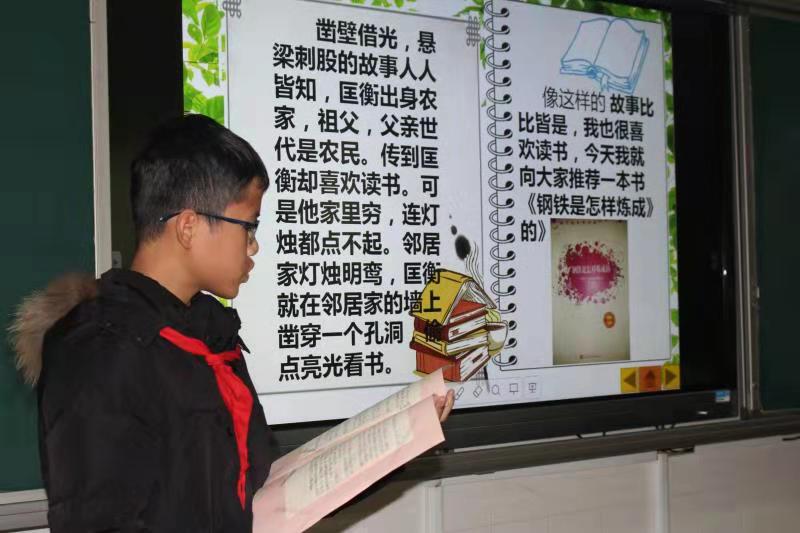 凿壁借光，悬
梁刺股的故事人人
皆知，匡衡出身农
家，祖父，父亲世
代是农民。传到匡
衡却喜欢读书。可
是他家里穷，连灯
烛都点不起。邻居
家灯烛明鸾，匡衡
就在邻居家的墙上
凿穿一个孔洞，偷
点亮光看书。
像这样的 故事比
比皆是，我也很喜
欢读书，今天我就
向大家推荐一本书
《钢铁是怎样炼成
的》
钢铁是怎样炼成的